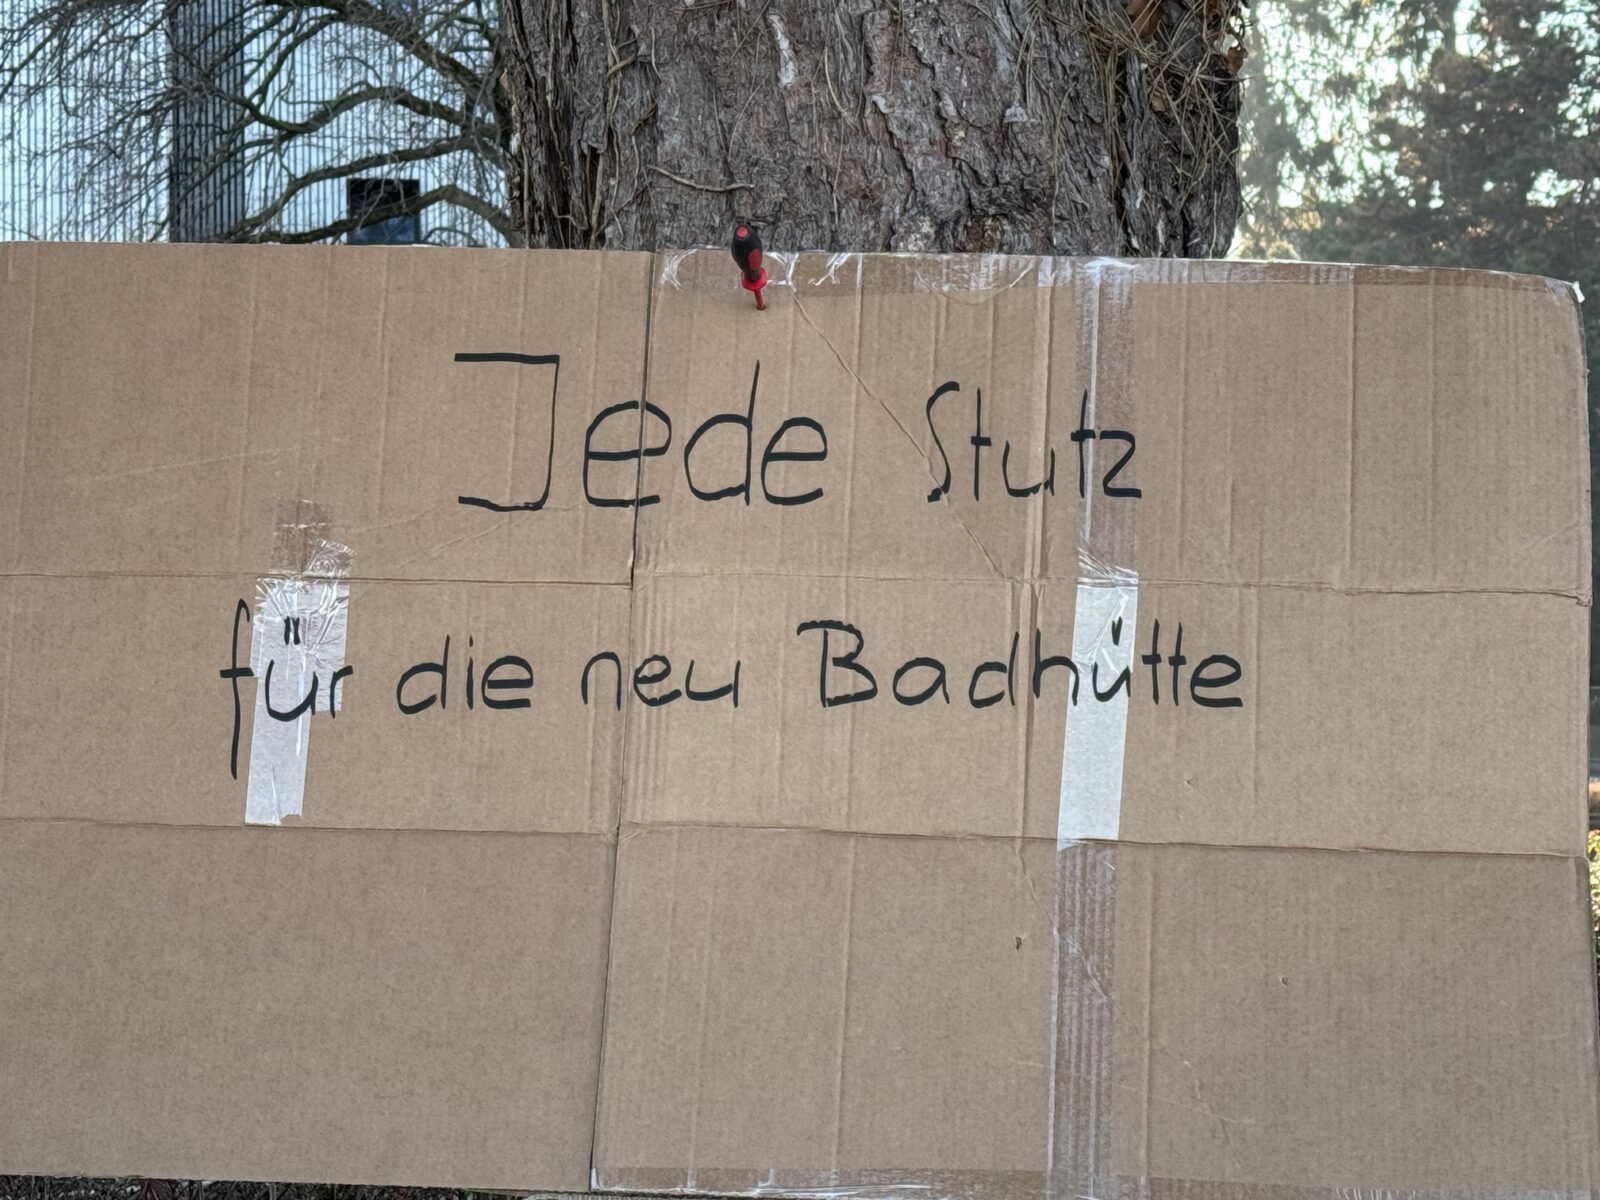 Jede Stutz
für die neu Badhütte